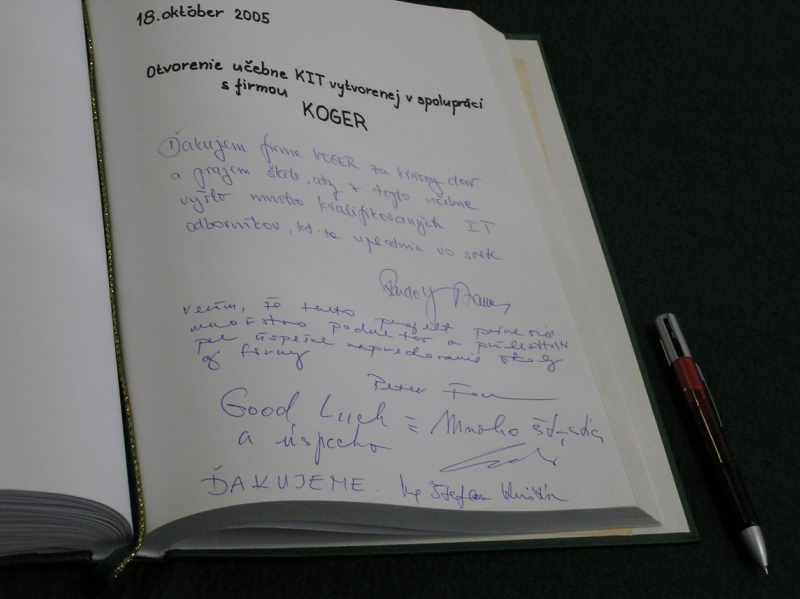 18. október 2005
Otvorenie učebne KIT vytvorenej v spolupráci
s firmou
KOGER
Ďakujem firme KOGER za krásny dar
a prajem škole, aby z tejto učebne
vyšlo mnoho kvalifikovaných IT
odborníkov, kt. sa uplatnia vo svete
Rudolf
verím, že tento projekt prinesie
množstvo podnetov a príležitostí
pre úspešné napredovanie školy
aj firmy
Peter
Good Luck = Mnoho šťastia
a úspecho
ĎAKUJEME. Ing Štefan